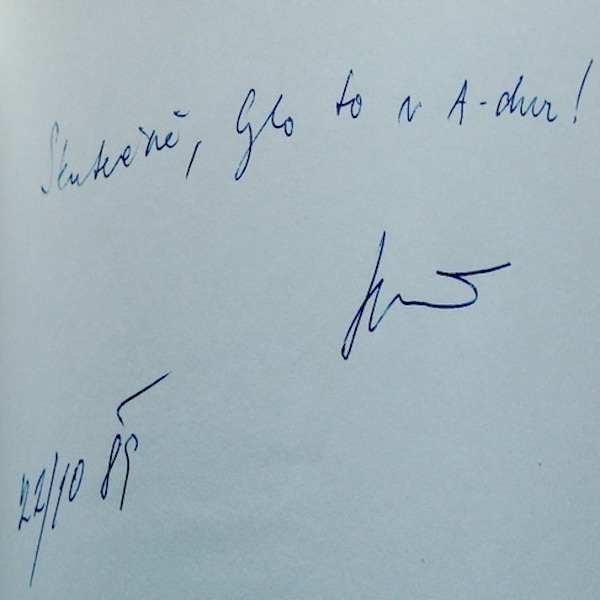 Skutečně, bylo to v A-dur!
22/10 89